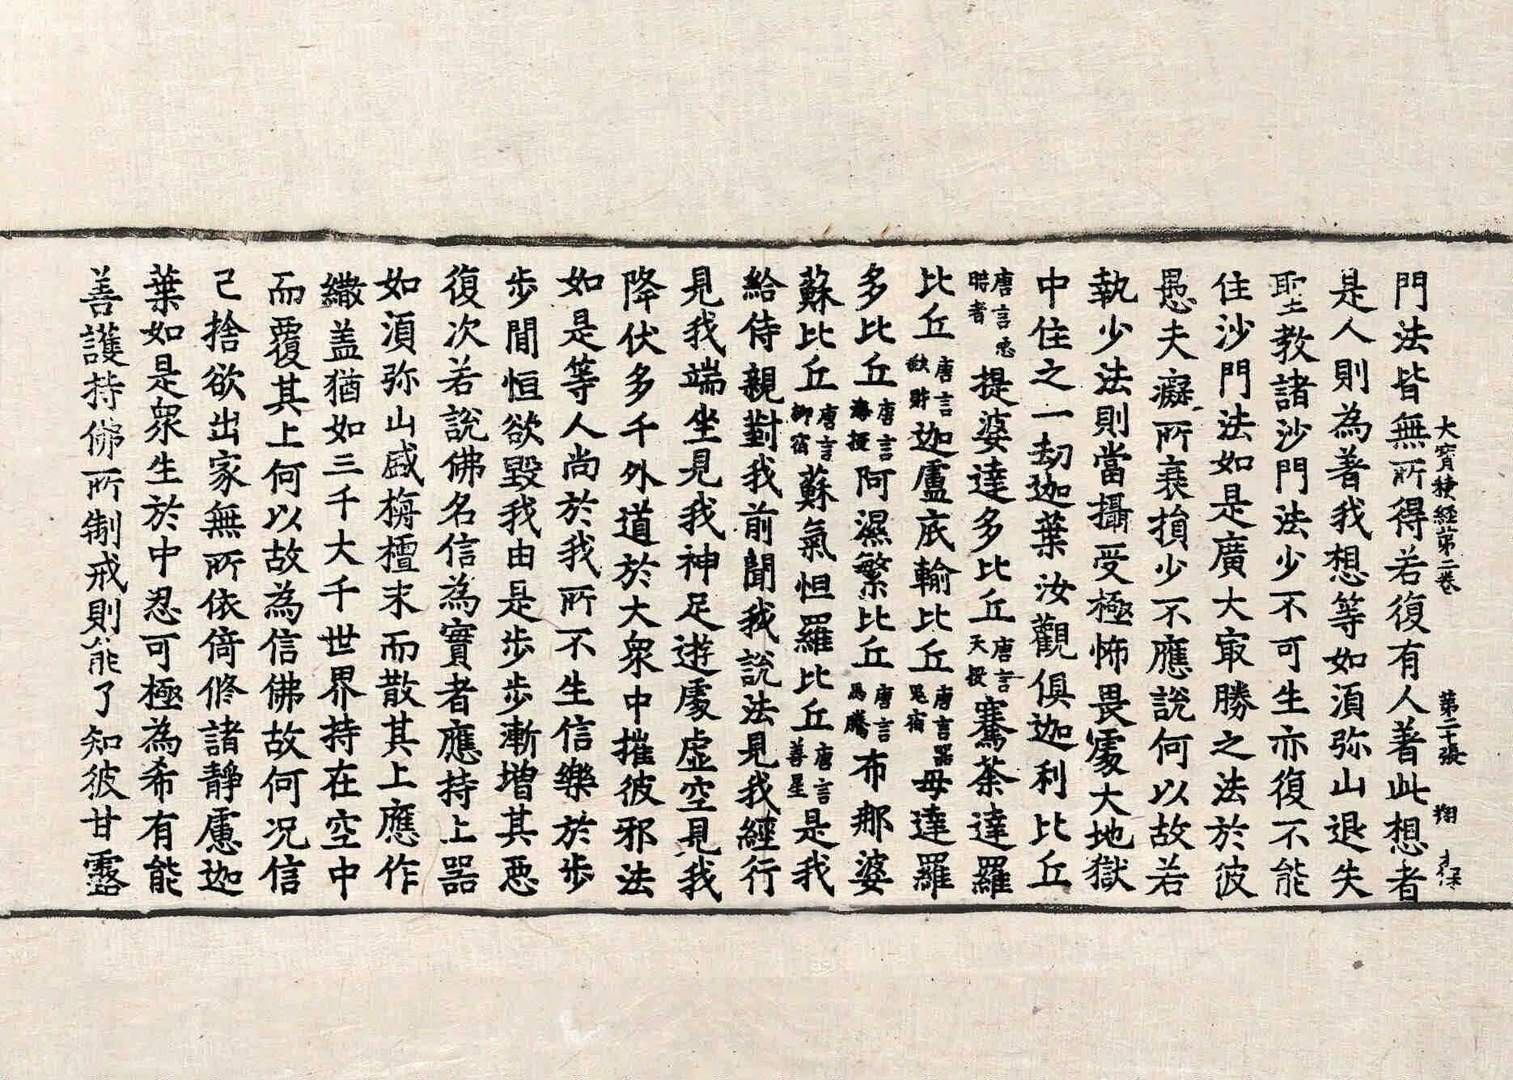 大寶積經第二卷 第二十張 翔
門法皆無所得若復有人著此想者
是人則為著我想等如湏弥山退失
聖教諸沙門法少不可生亦復不能
住沙門法如是廣大冣勝之法於彼
愚夫癡所衰損少不應說何以故若
執少法則當攝受極怖畏處大地獄
中住之一劫迦葉汝觀俱迦利比丘
唐言惡時者提婆達多比丘唐言天授騫馱荼達羅
比丘唐言缺財迦盧底輸比丘唐言嚚宿母達羅
多比丘唐言海授阿濕繁比丘唐言馬騰布那婆
蘇比丘唐言御宿蘇氣怛羅比丘唐言善星是我
給侍親對我前聞我說法見我經行
見我端坐見我神足遊處虛空見我
降伏多千外道於大衆中摧彼邪法
如是等人尚於我所不生信樂於歩
歩間恒欲毀我由是歩歩漸增其惡
復次若說佛名信為實者應持上器
如湏弥山盛栴檀末而散其上應作
繖盖猶如三千大千世界持在空中
而覆其上何以故為信佛故何况信
已捨欲出家無所依倚脩諸靜慮迦
葉如是衆生於中忍可極為希有能
善護持佛所制戒則能了知彼甘露